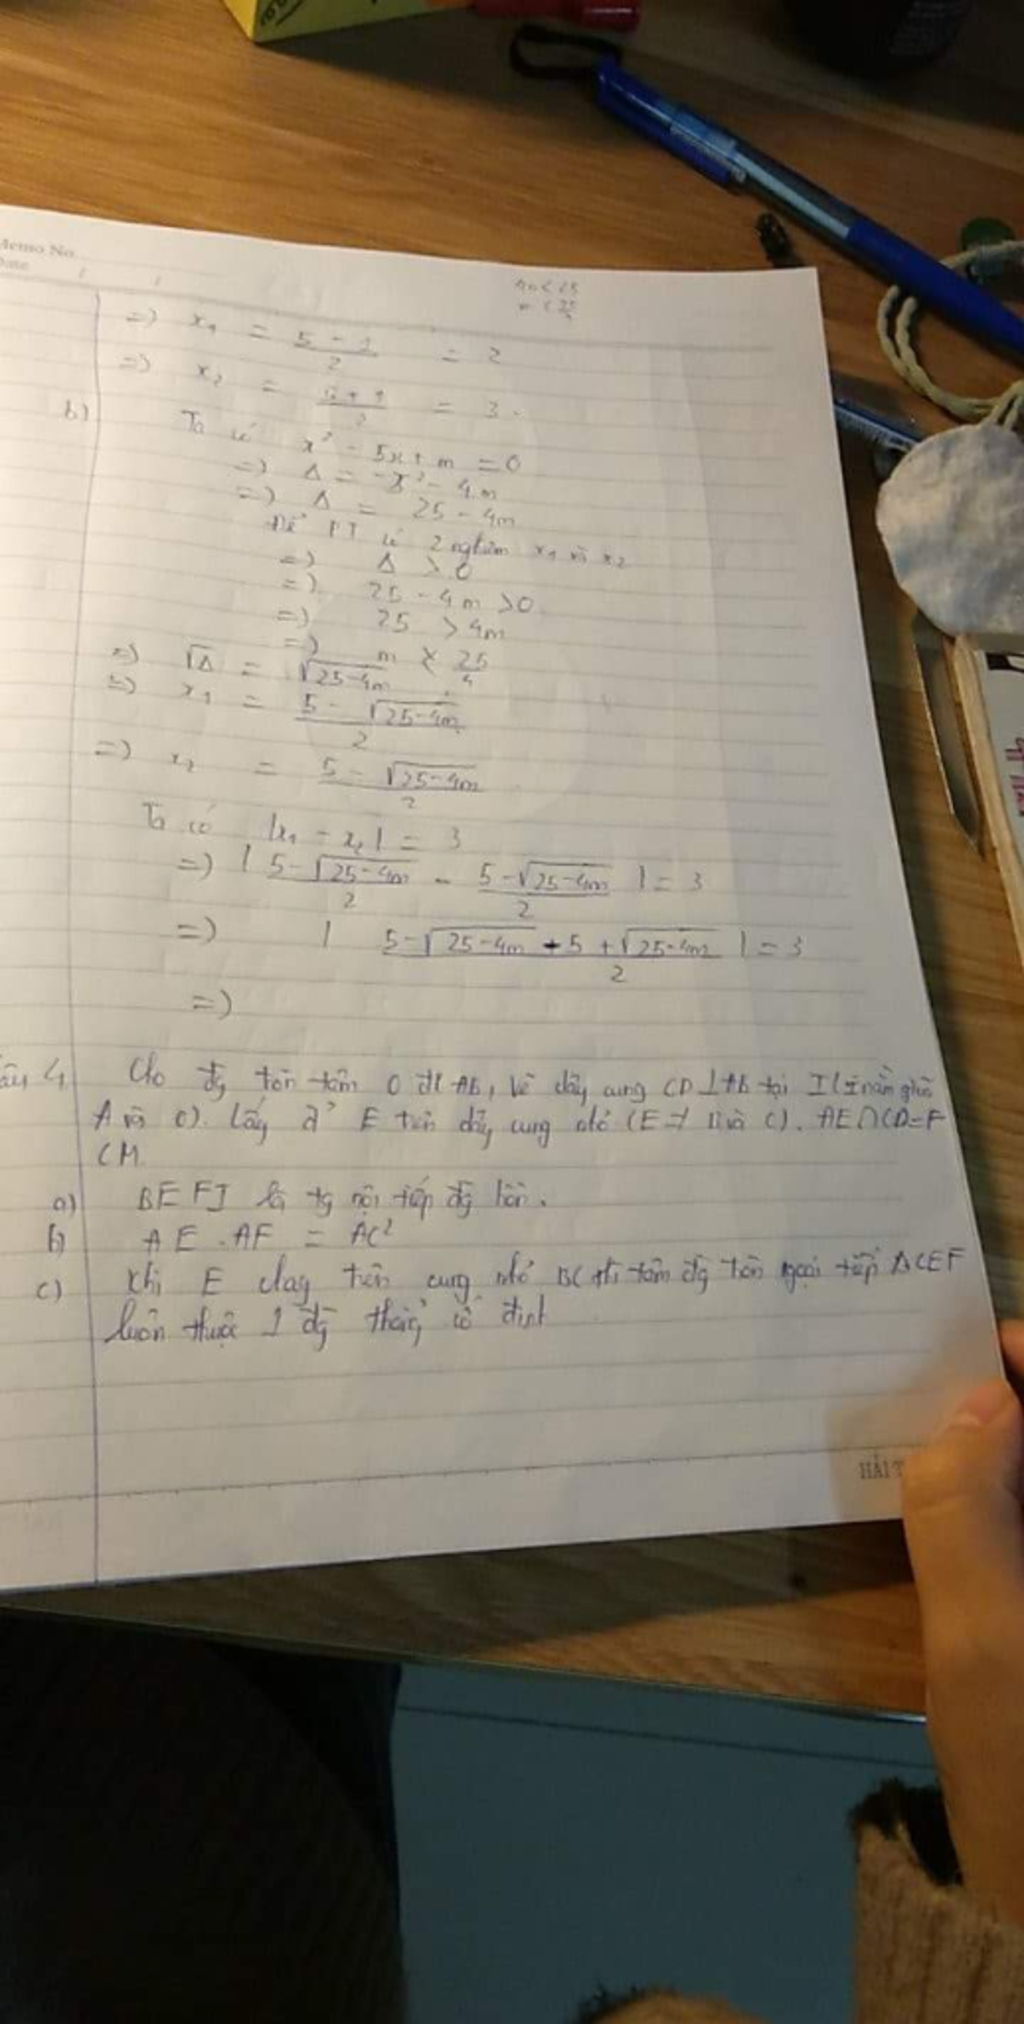 Memo No.
Date / /
4m < 25
m < 25/4
=) x₁ = (5 - 1)/2 = 2
=) x₂ = (5 + 1)/2 = 3.
b) Ta có x² - 5x + m = 0
=) Δ = -5² - 4m
=) Δ = 25 - 4m
Để PT có 2 nghiệm x₁ và x₂
=) Δ > 0
=) 25 - 4m > 0
=) 25 > 4m
=) m < 25/4
=) √Δ = √(25-4m)
=) x₁ = (5 - √(25-4m))/2
=) x₂ = (5 - √(25-4m))/2
Ta có |x₁ - x₂| = 3
=) | (5-√(25-4m))/2 - (5-√(25-4m))/2 | = 3
=) | (5-√(25-4m) + 5 + √(25-4m))/2 | = 3
=)
4 Cho đg tòn tâm O đk AB, vẽ dây cung CD ⊥ AB tại I (I nằm giữa
A và O). Lấy E trên dây cung nhỏ (E ≠ B và C). AE ∩ CD = F
CM
a) BEFI là tg nội tiếp đg tòn.
b) AE . AF = AC²
c) Khi E chạy trên cung nhỏ BC thì tâm đg tòn ngoại tiếp ΔCEF
luôn thuộc 1 đg thẳng cố định
HẢI T